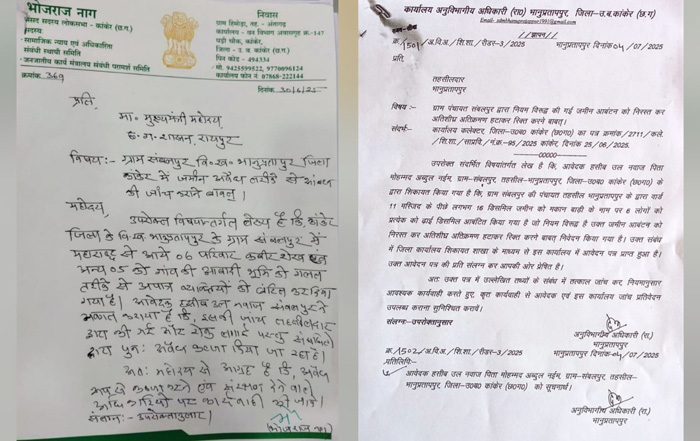 भोजराज नाग
सांसद सदस्य लोकसभा - कांकेर (छ.ग.)
सदस्य
-सामाजिक न्याय एवं अधिकारिता
संबंधी स्थायी समिति
-जनजातीय कार्य मंत्रालय संबंधी परामर्श समिति
क्रमांक 369
निवास
ग्राम हिमोड़ा, तह - अंतागढ़
कार्यालय - वन विभाग आवासगृह क्र.-147
पिन कोड - 494334
मो. 9425599522, 9770696124
कार्यालय फोन नं. 07868-222144
दिनांक 30/6/25
प्रति,
मा० मुख्यमंत्री महोदय
छ.ग. शासन, रायपुर
विषय:- ग्राम संबलपुर वि०ख० भानुप्रतापपुर जिला
कांकेर में जमीन अवैध तरीके से आबंटन
की जांच कराने बाबत्।
महोदय
उपरोक्त विषयान्तर्गत लेख्य है कि, कांकेर
जिला के वि.ख. भानुप्रतापपुर के ग्राम संबलपुर में
महाराष्ट्र से आये 06 परिवार कबीर शेख एवं
अन्य 05 को गांव की आबादी भूमि को गलत
तरीके से अपात्र व्यक्तियों को
गया है। आवेदक हसीब उल नवाज संबलपुर ने
अवगत कराया है कि, इसकी जांच तहसीलदार
द्वारा की गई और रोक लगाई परन्तु संबंधितों
द्वारा पुनः अवैध कब्जा किया जा रहा है।
अतः महोदय से आग्रह है कि, अवैध
रूप से कब्जा हटाने एवं संरक्षण देने वाले
अधिकारियों पर कार्यवाही की जाये।
संलग्न:- उपरोक्तानुसार।
(भोजराज नाग)
कार्यालय अनुविभागीय अधिकारी (रा0) भानुप्रतापपुर, जिला-उ.ब.कांकेर (छ.ग)
//ज्ञापन//
क्र. 1501/अ.वि.अ./शि.शा./रीडर-3/2025 भानुप्रतापपुर दिनांक 04/07/2025
प्रति,
तहसीलदार
भानुप्रतापपुर
विषय :- ग्राम पंचायत संबलपुर द्वारा नियम विरुद्ध की गई जमीन आबंटन को निरस्त कर
अतिशीघ्र अतिक्रमण हटाकर रिक्त करने बाबत्।
संदर्भ:- कार्यालय कलेक्टर, जिला-उ0ब0 कांकेर (छ0ग0) का पत्र क्रमांक/2711/कले.
/शि.शा./सा.प्रवि./नं.क्र.-95/2025 कांकेर, दिनांक 25/06/2025.
-----00000-----
उपरोक्त संदर्भित विषयांतर्गत लेख है कि, आवेदक हसीब उल नवाज पिता
मोहम्मद अब्दुल नईम, ग्राम-संबलपुर, तहसील-भानुप्रतापपुर, जिला-उ0ब0 कांकेर (छ0ग0) के
द्वारा शिकायत किया गया है कि, ग्राम संबलपुर की पंचायत तहसील भानुप्रतापपुर के द्वारा वार्ड
11 मस्जिद के पीछे लगभग 16 डिसमिल जमीन को मकान बाड़ी के नाम पर 6 लोगों को
प्रत्येक को ढाई डिसमिल आबंटित किया गया है जो नियम विरुद्ध है उक्त जमीन आबंटन को
निरस्त कर अतिशीघ्र अतिक्रमण हटाकर रिक्त करने बाबत् निवेदन किया गया है। उक्त संबंध
में जिला कार्यालय शिकायत शाखा के माध्यम से इस कार्यालय में आवेदन पत्र प्राप्त हुआ है।
उक्त आवेदन पत्र की प्रति संलग्न कर आपकी ओर प्रेषित है।
अतः उक्त पत्र में उल्लेखित तथ्यों के संबंध में तत्काल जांच कर, नियमानुसार
आवश्यक कार्यवाही करते हुए, कृत कार्यवाही से आवेदक एवं इस कार्यालय जांच प्रतिवेदन
उपलब्ध कराना सुनिश्चित करावें।
संलग्न:-उपरोक्तानुसार
अनुविभागीय अधिकारी (रा.)
भानुप्रतापपुर
क्र. 1502/अ.वि.अ./शि.शा./रीडर-3/2025 भानुप्रतापपुर दिनांक 04/07/2025
प्रतिलिपि:-
आवेदक हसीब उल नवाज पिता मोहम्मद अब्दुल नईम, ग्राम-संबलपुर, तहसील-
भानुप्रतापपुर, जिला-उ0ब0 कांकेर (छ0ग0) को सूचनार्थ।
अनुविभागीय अधिकारी (रा.)
भानुप्रतापपुर